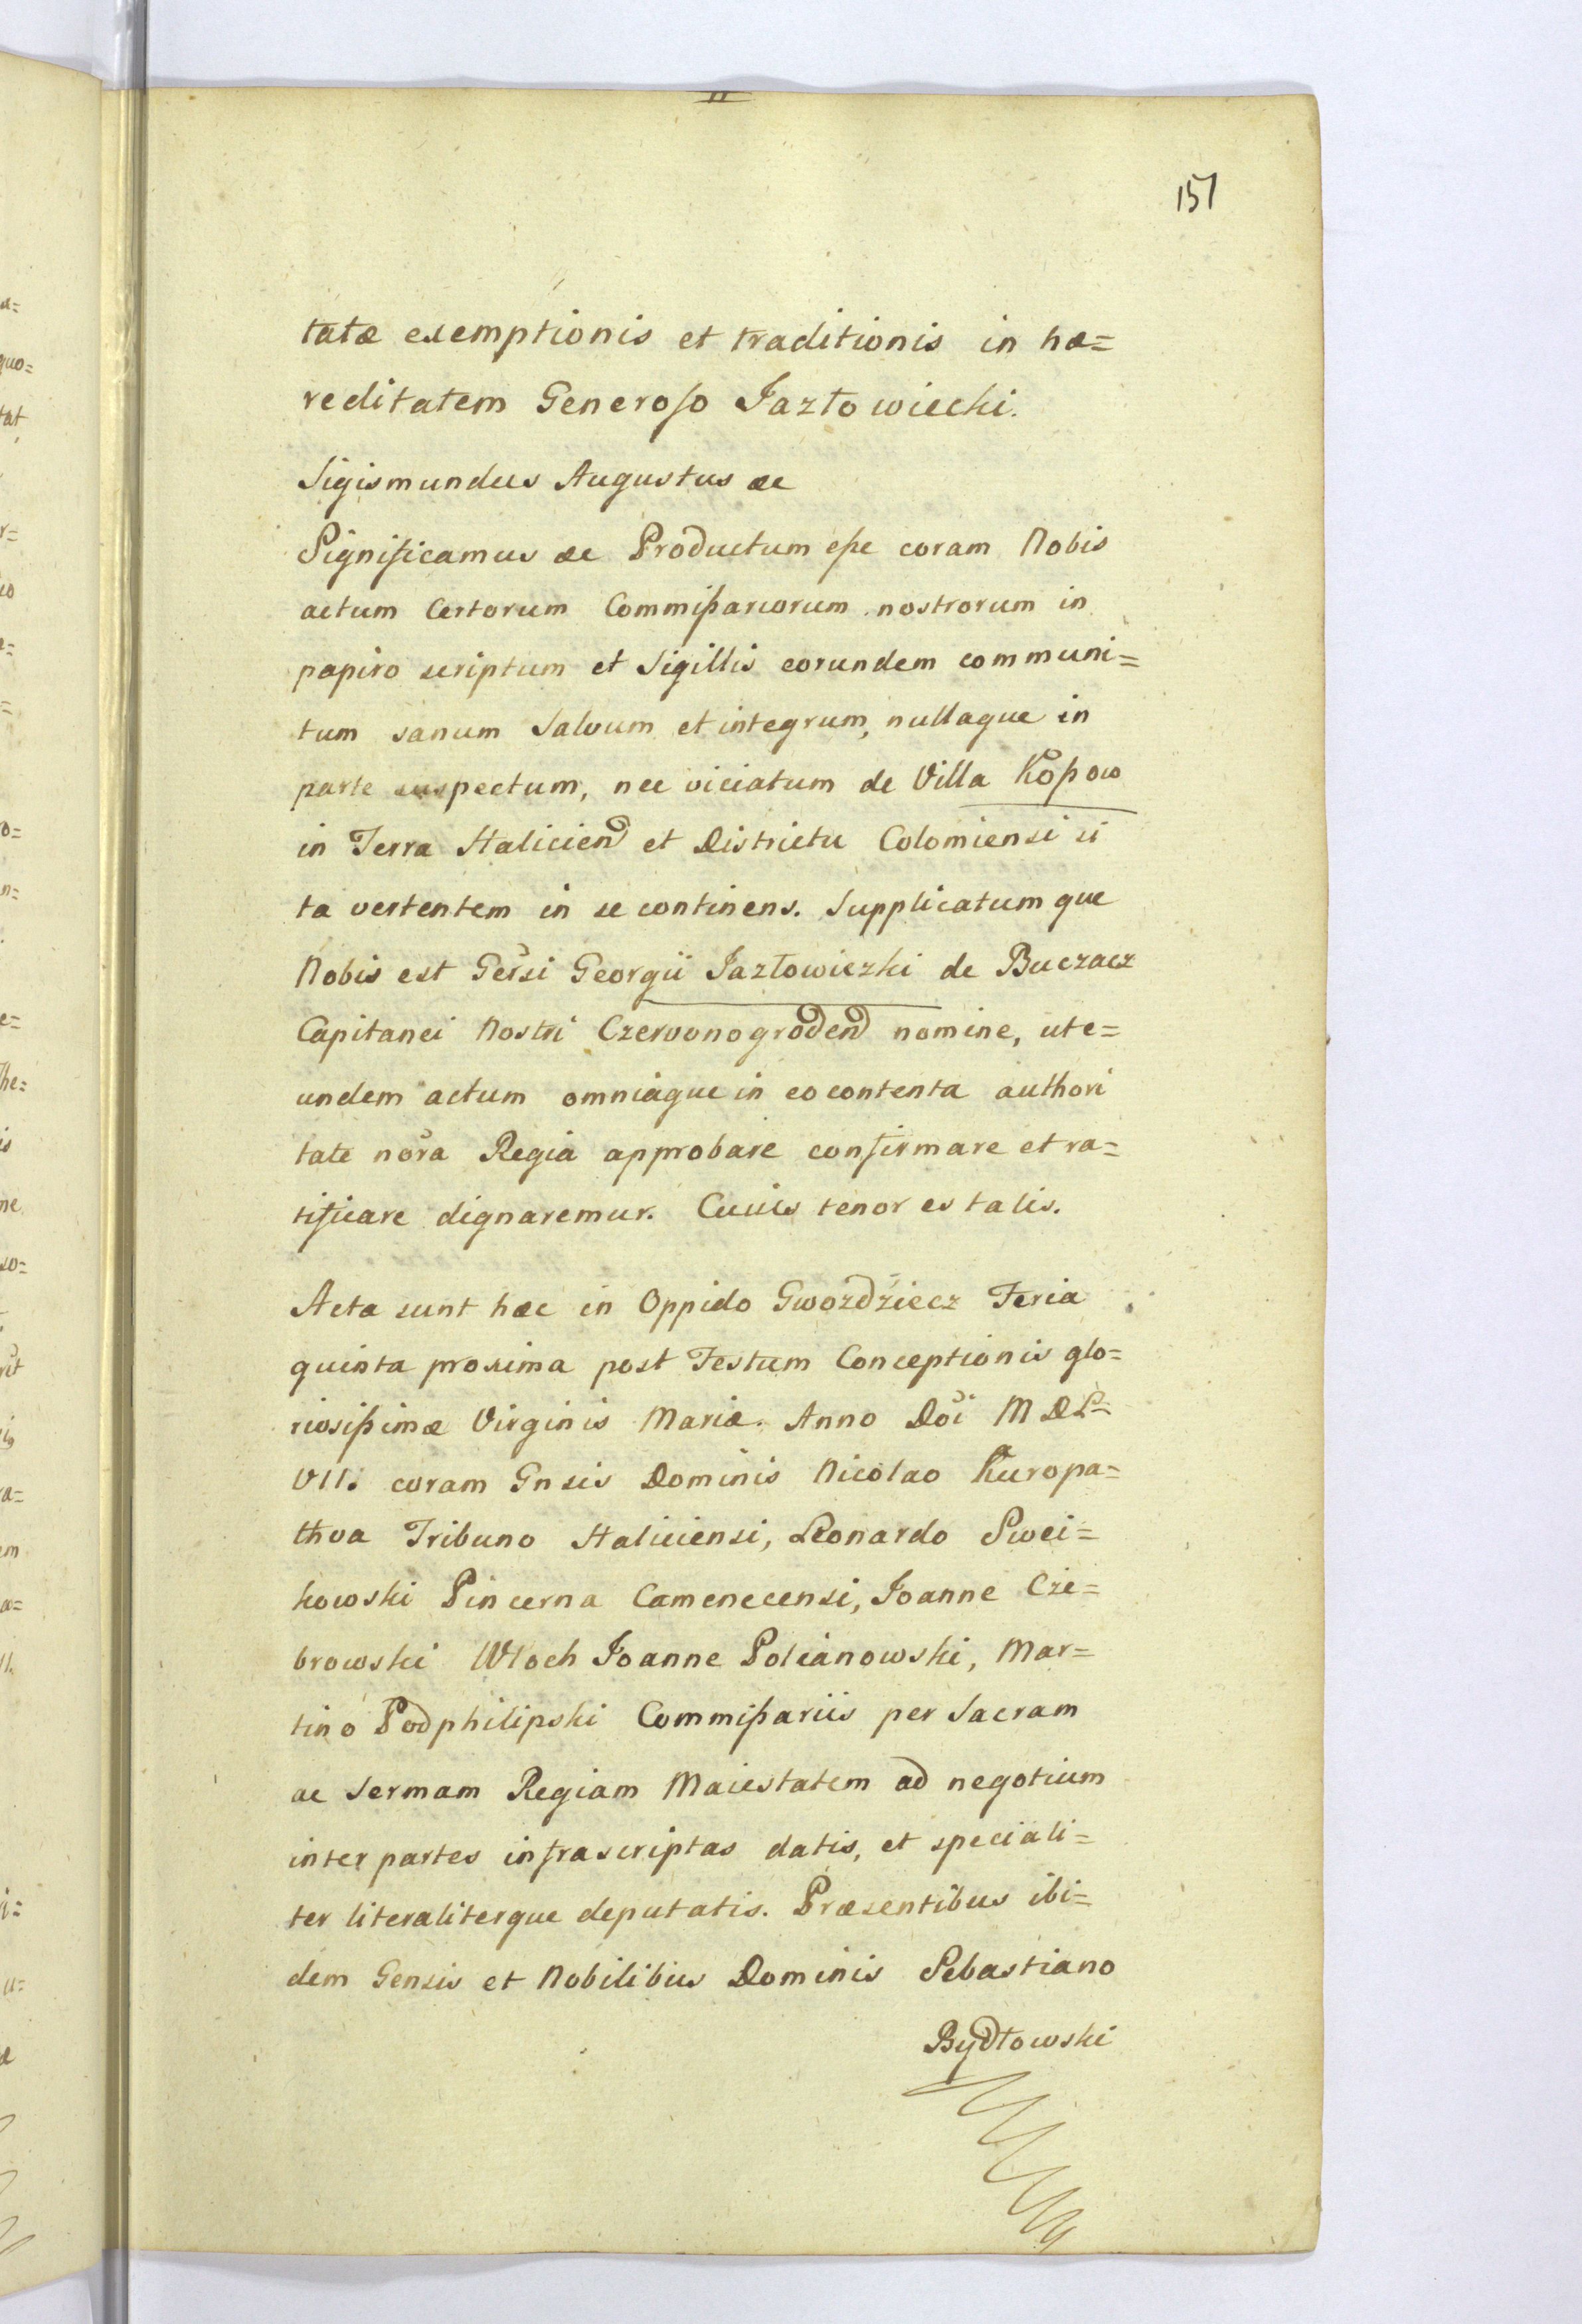 151
tatæ exemptionis et traditionis in hæ=
reditatem Generoso Jazłowiecki.
Sigismundus Augustus æc
Significamus æc Productum eße coram Nobis
actum Certorum Commißariorum nostrorum in
papiro scriptum et Sigillis eorundem communi=
tum sanum Salvum et integrum, nullaque in
parte suspectum, nec viciatum de Villa Koßow
in Terra Halicien et Districtu Colomiensi si
ta vertentem in se continens. Supplicatum que
Nobis est Gersi Georgii Jazłowiczki de Buczacz
Capitanei Nostri Czervonogroden nomine, ut e=
undem actum omniaque in eo contenta authori
tate nora Regia approbare confirmare et ra=
tificare dignaremur. Cuius tenor es talis.
Acta sunt hæc in Oppido Gwozdziecz Feria
quinta proxima post Festum Conceptionis glo=
riosißimæ Virginis Mariæ. Anno Doi MDL=
VII. coram Gnsis Dominis Nicolao Kuropa=
thva Tribuno Haliciensi, Leonardo Swei=
kowski Pincerna Camenecensi, Joanne Cze=
browski Włoch Joanne Polianowski, Mar=
tino Podphilipski Commißariis per Sacram
ac Sermam Regiam Maiestatem ad negotium
inter partes infrascriptas datis, et speciali=
ter literaliterque deputatis. Præsentibus ibi=
dem Gensis et Nobilibus Dominis Sebastiano
Bydłowski